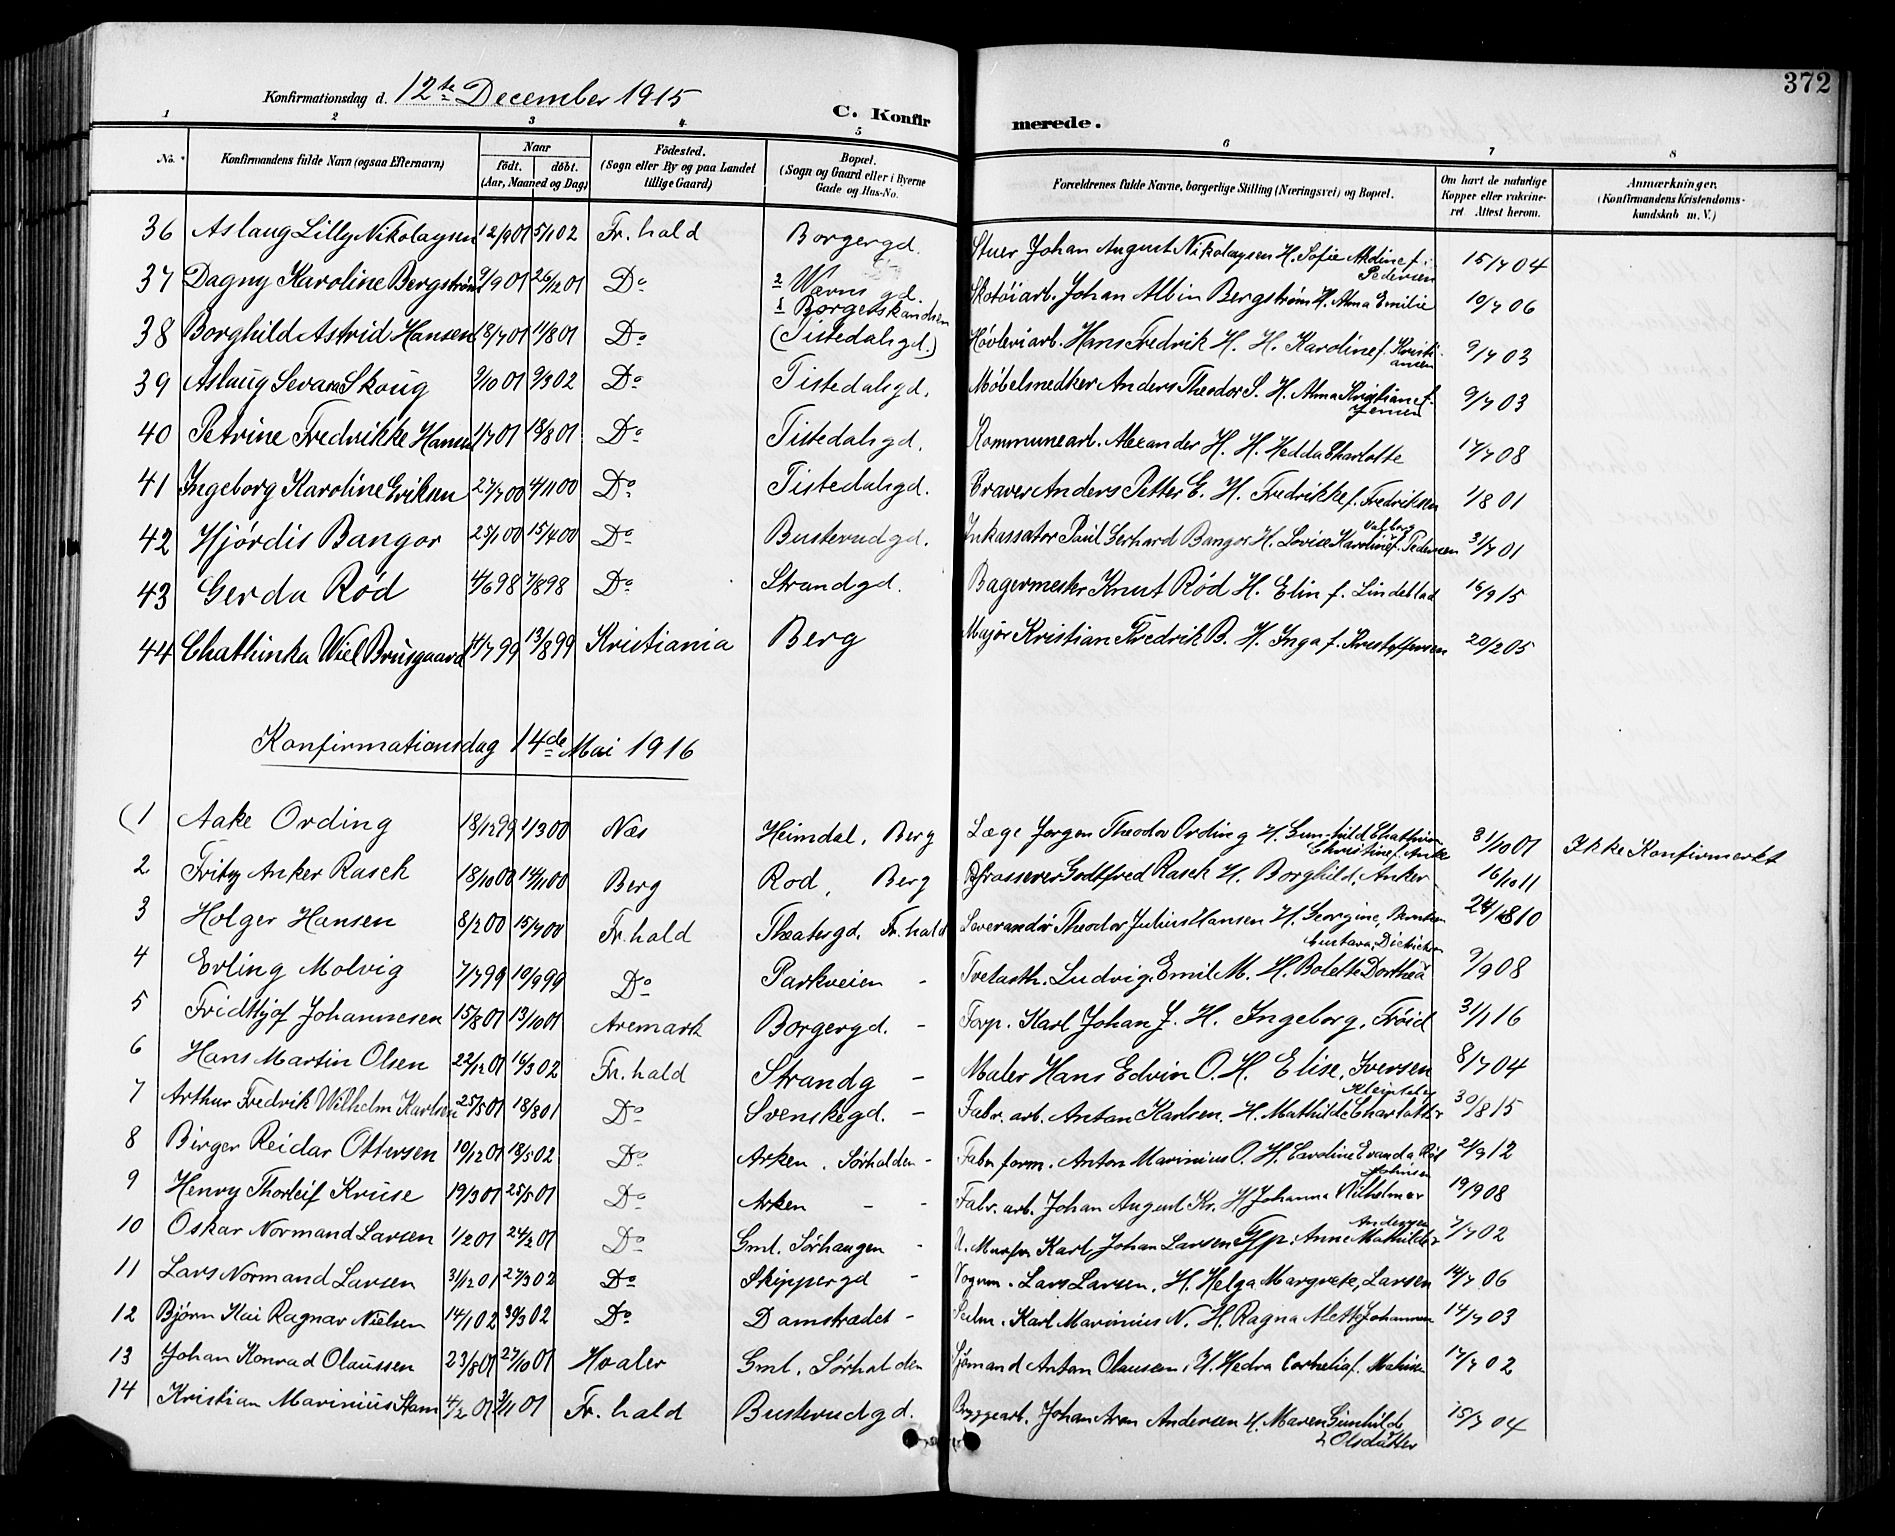 372
Konfirmationsdag d. 12te December 1915
C. Konfirmerede.
1 2 3 4 5 6 7 8
No. Konfirmandens fulde Navn (ogsaa Efternavn) Naar født. døbt. (Aar, Maaned og Dag) Fødested. (Sogn eller By og paa Landet tillige Gaard) Bopæl. (Sogn og Gaard eller i Byerne Gade og Hus-No. Forældrenes fulde Navne, borgerlige Stilling (Næringsvei) og Bopæl. Om havt de naturlige Kopper eller vakcineret Attest herom. Anmærkninger. (Konfirmandens Kristendomskundskab m. V.)
36 Aslaug Lilly Nikolaysen 12/9 01 5/1 02 Fr.hald Borgergd. Stuer Johan August Nikolaysen H. Sofie Aldine f. Pedersen 15/7 04
37 Dagny Karoline Bergstrøm 9/9 01 26/12 01 Do 2 Wærns gd. 1 Borgerskandsen Skotøiarb. Johan Albin Bergstrøm H. Alma Emilie 10/7 06
38 Borghild Astrid Hansen 18/7 01 11/8 01 Do (Tistedalsgd.) Høvleriarb. Hans Fredrik H. H. Karoline f. Kristiansen 9/7 03
39 Aslaug Sevara Skoug 9/10 01 9/3 02 Do Tistedalsgd. Møbelsnedker Anders Theodor S. H. Alma Kristiane f. Jensen 9/7 03
40 Petrine Fredrikke Hansen 1/7 01 18/8 01 Do Tistedalsgd. Kommunearb. Alexander H. H. Hedda Charlotte 17/7 08
41 Ingeborg Karoline Eriksen 27/7 00 4/11 00 Do Tistedalsgd. Graver Anders Petter E. H. Fredrikke f. Fredriksen 1/8 01
42 Hjørdis Bangor 23/1 00 15/4 00 Do Busterudgd. Inkassator Paul Gerhard Bangor H. Lovise Karoline Valborg f. Pedersen 31/7 01
43 Gerda Rød 4/6 98 7/8 98 Do Strandgd. Bagermester Knut Rød H. Elin f. Lindeblad 16/9 15
44 Chathinka Wiel Brusgaard 4/7 99 13/8 99 Kristiania Berg Major Kristian Fredrik B. H. Inga f. Kristoffersen 20/2 05
Konfirmationsdag 14de Mai 1916
(1 Aake Ording 18/12 99 1/3 00 Næs Heimdal, Berg Læge Jørgen Theodor Ording H. Gunhild Chathrine Christine f. Anke 31/10 01 Ikke Konfirmerkt
2 Fritz Anker Rasch 18/10 00 14/11 00 Berg Rod, Berg Grosserer Godtfred Rasch H. Borghild, Anker 16/10 11
3 Holger Hansen 8/2 00 15/7 00 Fr.hald Theatergd. Fr.hald Leverandør Theodor Julius Hansen H. Georgine, Berntsen 24/8 10
4 Erling Molvig 7/7 99 10/9 99 Do Parkveien - Tvetasth. Ludvig Emil M. H. Bolette Dorthea Gustava, Dietrichsen 9/9 08
5 Fridthjof Johannesen 15/8 01 13/10 01 Aremark Borgergd. - Forp. Karl Johan J. H. Ingeborg, Frøid 31/1 16
6 Hans Martin Olsen 22/12 01 16/3 02 Fr.hald Strandg - Maler Hans Edvin O. H. Elise, Iversen 8/7 04
7 Arthur Fredrik Wilhelm Karlsen 25/5 01 18/8 01 Do Svenskegd. - Fabr. arb. Anton Karlsen. H. Mathilde Charlotte 30/8 15
8 Birger Reidar Ottersen 10/12 01 18/5 02 Do Arken. Sørhalden - Fabr form. Anton Marinius O. H. Caroline Evanda 21/9 12
9 Henry Thorleif Kruse 19/3 01 25/5 01 Do Arken - - Fabr. arb. Johan August Kr. H Johanna Wilhelmine Johnsen 19/9 08
10 Oskar Normand Larsen 1/2 01 24/2 01 Do Gml. Sørhaugen - Karl Johan Larsen Gfp. Anne Mathilde Andersen 7/7 02
11 Lars Normand Larsen 31/12 01 27/3 02 Do Skippergd - Vognm. Lars Larsen, H. Helga Margrete, Larsen 14/7 06
12 Bjørn Kai Ragnar Nielsen 14/1 02 30/3 02 Do Damstrædet - Seilm. Karl Marinius N. H. Ragna Alette Johannesen 14/7 03
13 Johan Konrad Olaussen 23/8 01 27/10 01 Hvaler Gml. Sørhalden Sjømand Anton Olaussen, H. Hedva Cornelia f. Mathisen 17/7 02
14 Kristian Marinius Stam 4/2 01 3/11 01 Fr. hald Busterudgd. Bryggearb. Johan Aron Andersen H. Maren Gunhilde Olsdatter 15/7 04